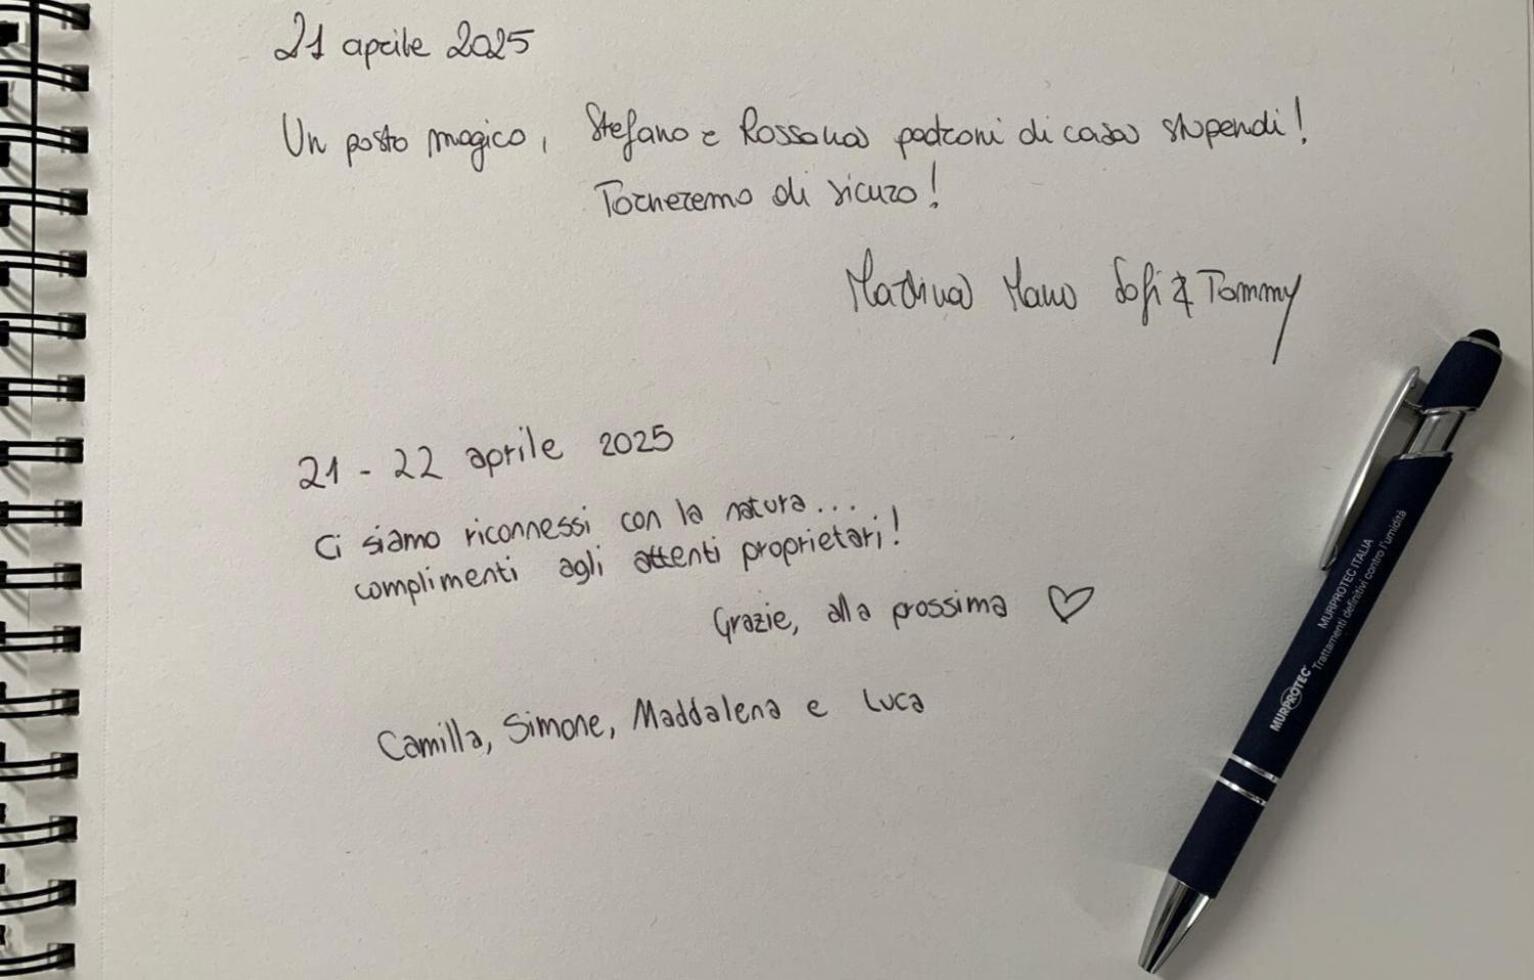 21 aprile 2025
Un posto magico, Stefano e Rossana padroni di casa stupendi!
Torneremo di sicuro!
Martina Manu Sofi & Tommy
21 - 22 aprile 2025
Ci siamo riconnessi con la natura...
complimenti agli attenti proprietari!
Grazie, alla prossima ♡
Camilla, Simone, Maddalena e Luca
MURPROTEC ITALIA
MURPROTEC Trattamenti definitivi contro l'umidità